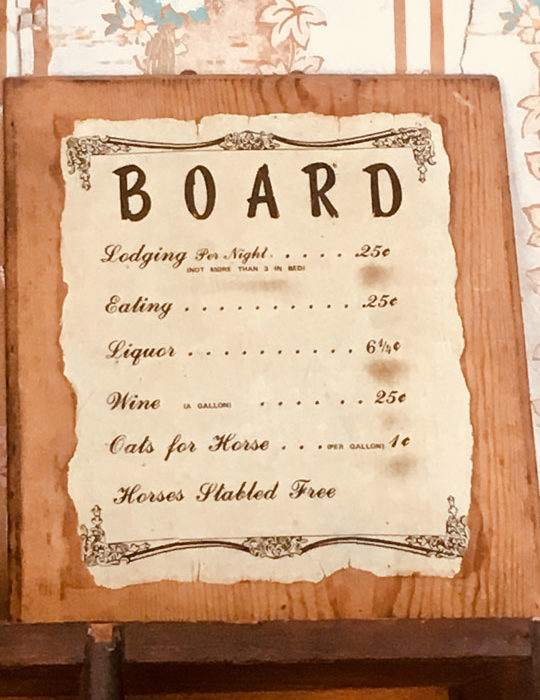 BOARD
Lodging Per Night . . . . . 25¢
(NOT MORE THAN 3 IN BED)
Eating . . . . . . . . . . . 25¢
Liquor . . . . . . . . . . . 6¼¢
Wine (A GALLON) . . . . . . 25¢
Oats for Horse . . . (PER GALLON) 1¢
Horses Stabled Free